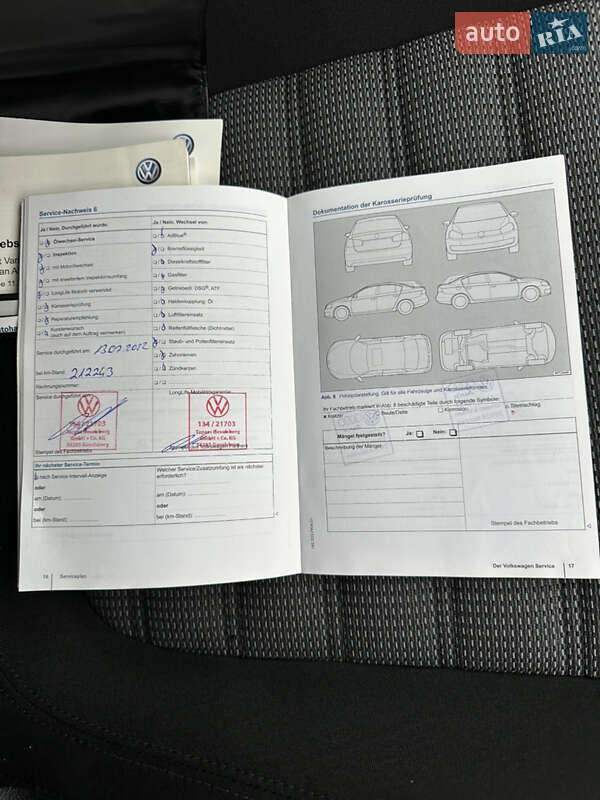 auto RIA.com
Service-Nachweis 6
Ja / Nein, Durchgeführt wurde:
Ja / Nein, Wechsel von:
Ölwechsel-Service
AdBlue®
Inspektion
Bremsflüssigkeit
mit Motorölwechsel
Dieselkraftstofffilter
mit erweitertem Inspektionsumfang
Gasfilter
LongLife Motoröl verwendet
Getriebeöl: DSG®, ATF
Karosserieprüfung
Haldexkupplung: Öl
Reparaturempfehlung
Luftfiltereinsatz
Kundenwunsch
(auch auf dem Auftrag vermerken)
Reifenfüllflasche (Dichtmittel)
Service durchgeführt am:
Staub- und Pollenfiltereinsatz
Zahnriemen
bei km-Stand: 212243
Zündkerzen
Rechnungsnummer:
Service durchgeführt
LongLife Mobilitätsgarantie
134 / 21703
134 / 21703
GmbH + Co. KG
GmbH + Co. KG
Stempel des Fachbetriebs
Ihr nächster Service-Termin
nach Service-Intervall-Anzeige
oder
am (Datum):
oder
bei (km-Stand):
Welcher Service/Zusatzumfang ist als nächster
erforderlich?
am (Datum):
oder
bei (km-Stand):
16 Serviceplan
Dokumentation der Karosserieprüfung
Abb. 8 Prinzipdarstellung: Gilt für alle Fahrzeuge und Karosserieformen.
Ihr Fachbetrieb markiert in Abb. 8 beschädigte Teile durch folgende Symbole:
Kratzer
Beule/Delle
Korrosion
Steinschlag
Mängel festgestellt?
Ja:
Nein:
Beschreibung der Mängel:
Stempel des Fachbetriebs
Der Volkswagen Service 17